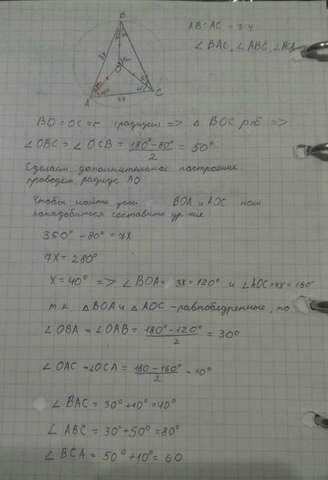 B
AB:AC = 3:4
∠BAC, ∠ABC, ∠BCA
3x
O
A
C
4x
BO = OC = r (радиусы) => △ BOC р/б =>
∠OBC = ∠OCB = (180°-80°)/2 = 50°
Сделаем дополнительное построение
проведем радиус AO
Чтобы найти углы BOA и AOC нам
понадобиться составить ур-ние
360° - 80° = 7x
7x = 280°
x = 40° => ∠BOA = 3x = 120° и ∠AOC = 4x = 160°
т.к. △BOA и △AOC - равнобедренные, то
∠OBA = ∠OAB = (180°-120°)/2 = 30°
∠OAC = ∠OCA = (180-160°)/2 = 10°
∠BAC = 30°+10° = 40°
∠ABC = 30°+50° = 80°
∠BCA = 50°+10° = 60